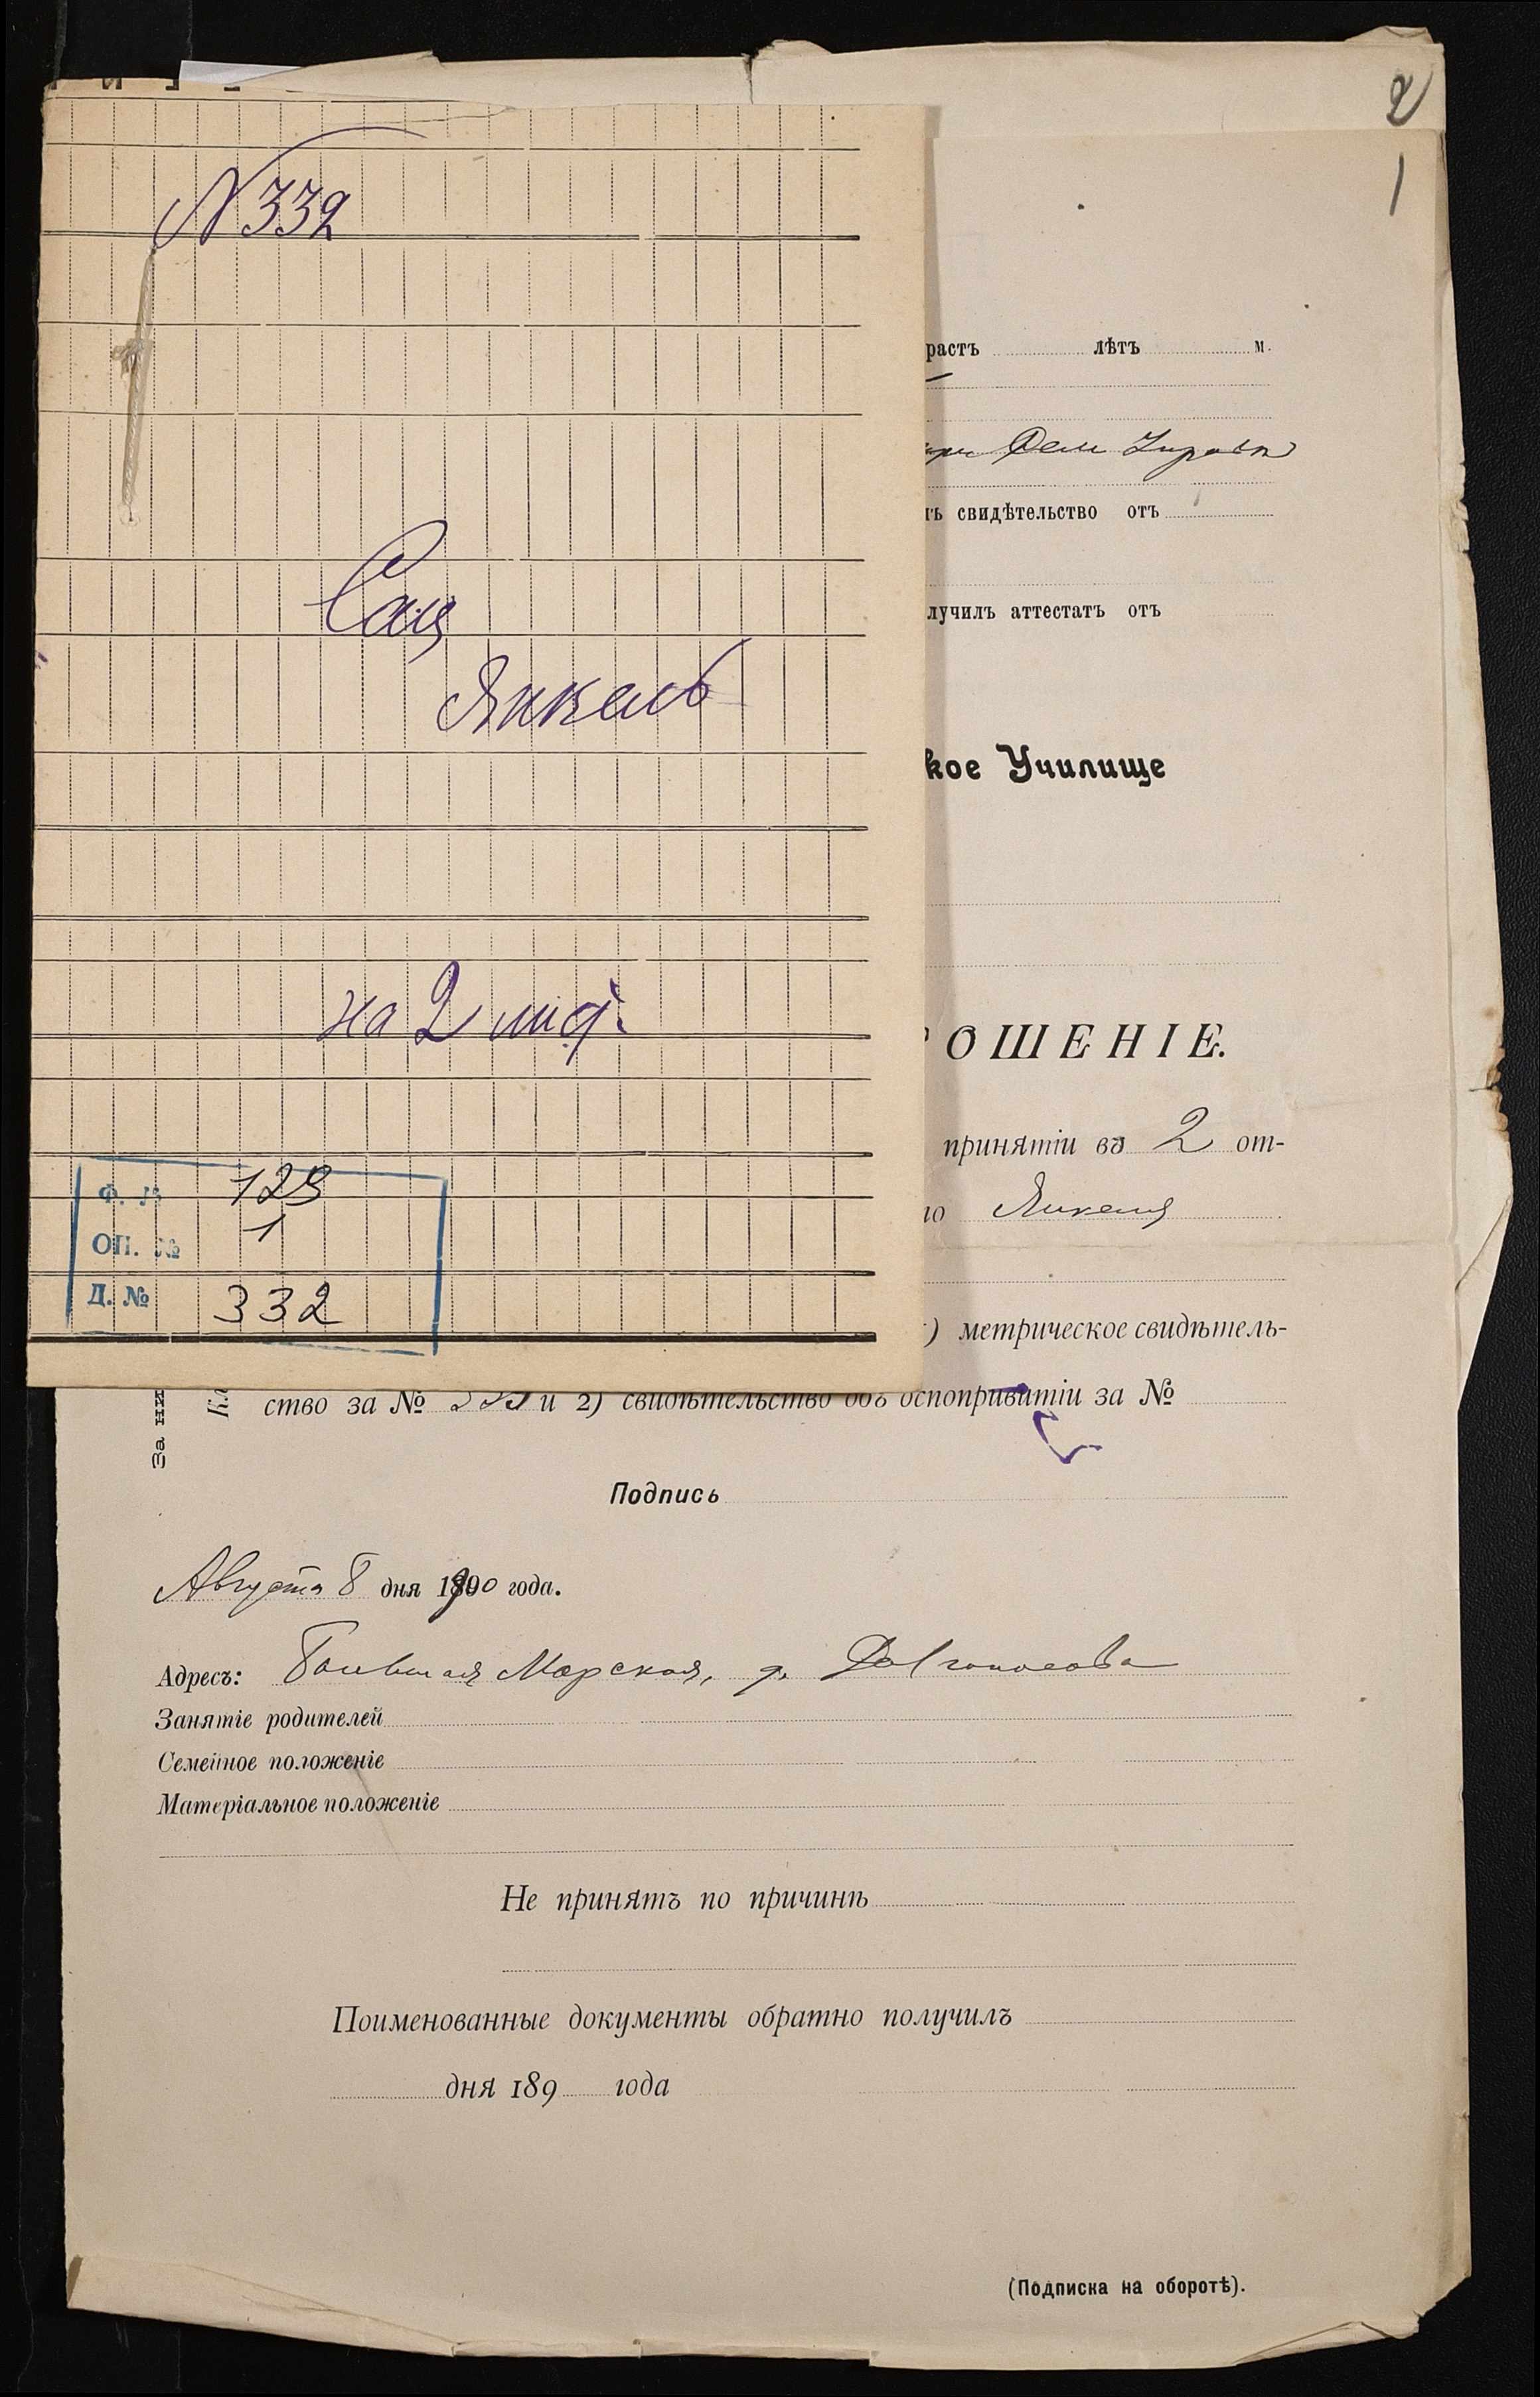 2
1
N 332
Сац
Янкель
на 2 лид.
Ф. № 129
ОП. № 1
Д. № 332
растъ лѣтъ м.
свидѣтельство отъ
лучилъ аттестатъ отъ
кое Училище
ОШЕНІЕ.
принятіи въ 2 от-
Янкеля
) метрическое свидѣтель-
ство за № и 2) свидѣтельство объ оспопривитіи за №
Подпись
Августа 8 дня 1900 года.
Адресъ: Большая Морская, д.
Занятіе родителей
Семейное положеніе
Матеріальное положеніе
Не принятъ по причинѣ
Поименованные документы обратно получилъ
дня 189 года
(Подписка на оборотѣ).